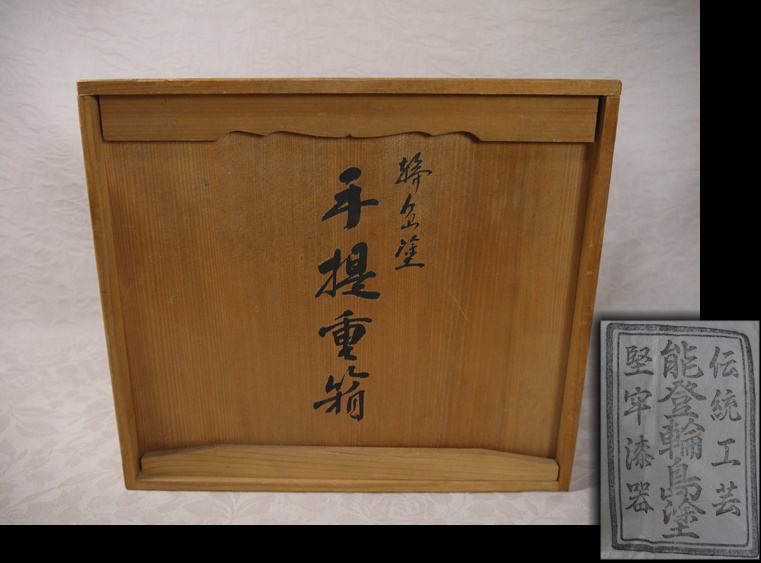 輪島塗
手提重箱
伝統工芸
能登輪島塗
堅牢漆器